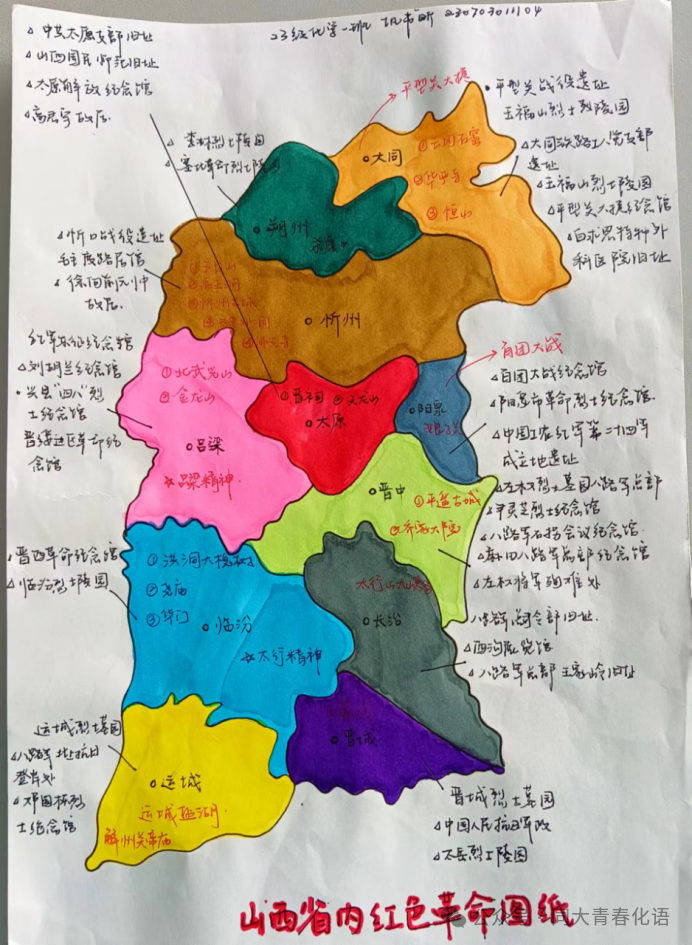 23级化学一班
230703011104
中共太原支部旧址
山西国民师范旧址
太原解放纪念馆
高君宇故居
李林烈士陵园
塞北革命烈士陵园
平型关大捷
平型关战役遗址
玉福山烈士陵园
大同铁路工人党支部
遗址
玉福山烈士陵园
平型关大捷纪念馆
白求恩特种外
科医院旧址
大同
①云冈石窟
②华严寺
③恒山
朔州
忻口战役遗址
毛主席路居馆
徐向前元帅
故居
忻州
红军东征纪念馆
刘胡兰纪念馆
兴县“四八”烈
士纪念馆
晋绥边区革命纪
念馆
①北武当山
②金龙山
吕梁
☆吕梁精神
①晋祠 ②天龙山
太原
阳泉
娘子关
百团大战
百团大战纪念馆
阳泉市革命烈士纪念馆
中国工农红军第二十四军
成立地遗址
晋中
①平遥古城
②乔家大院
左权烈士墓园八路军总部
尹灵芝烈士纪念馆
八路军石拐会议纪念馆
麻田八路军总部纪念馆
左权将军殉难处
晋西革命纪念馆
临汾烈士陵园
①洪洞大槐树
②尧庙
③华门
临汾
☆太行精神
太行山大峡谷
长治
八路军总司令部旧址
西沟展览馆
八路军总部王家峪旧址
运城烈士墓园
八路军北上抗日
登岸处
邓国栋烈
士纪念馆
运城
运城盐湖
解州关帝庙
晋城
晋城烈士墓园
中国人民抗日军政
太岳烈士陵园
山西省内红色革命图纸
公众号·同大青春化语